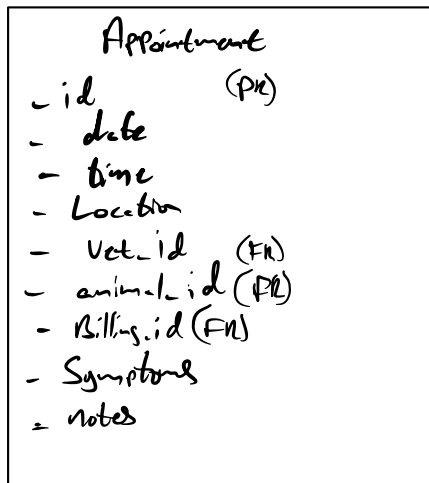 Appointment
- id (PK)
- date
- time
- Location
- Vet_id (FK)
- animal_id (FK)
- Billing_id (FK)
- Symptoms
- notes